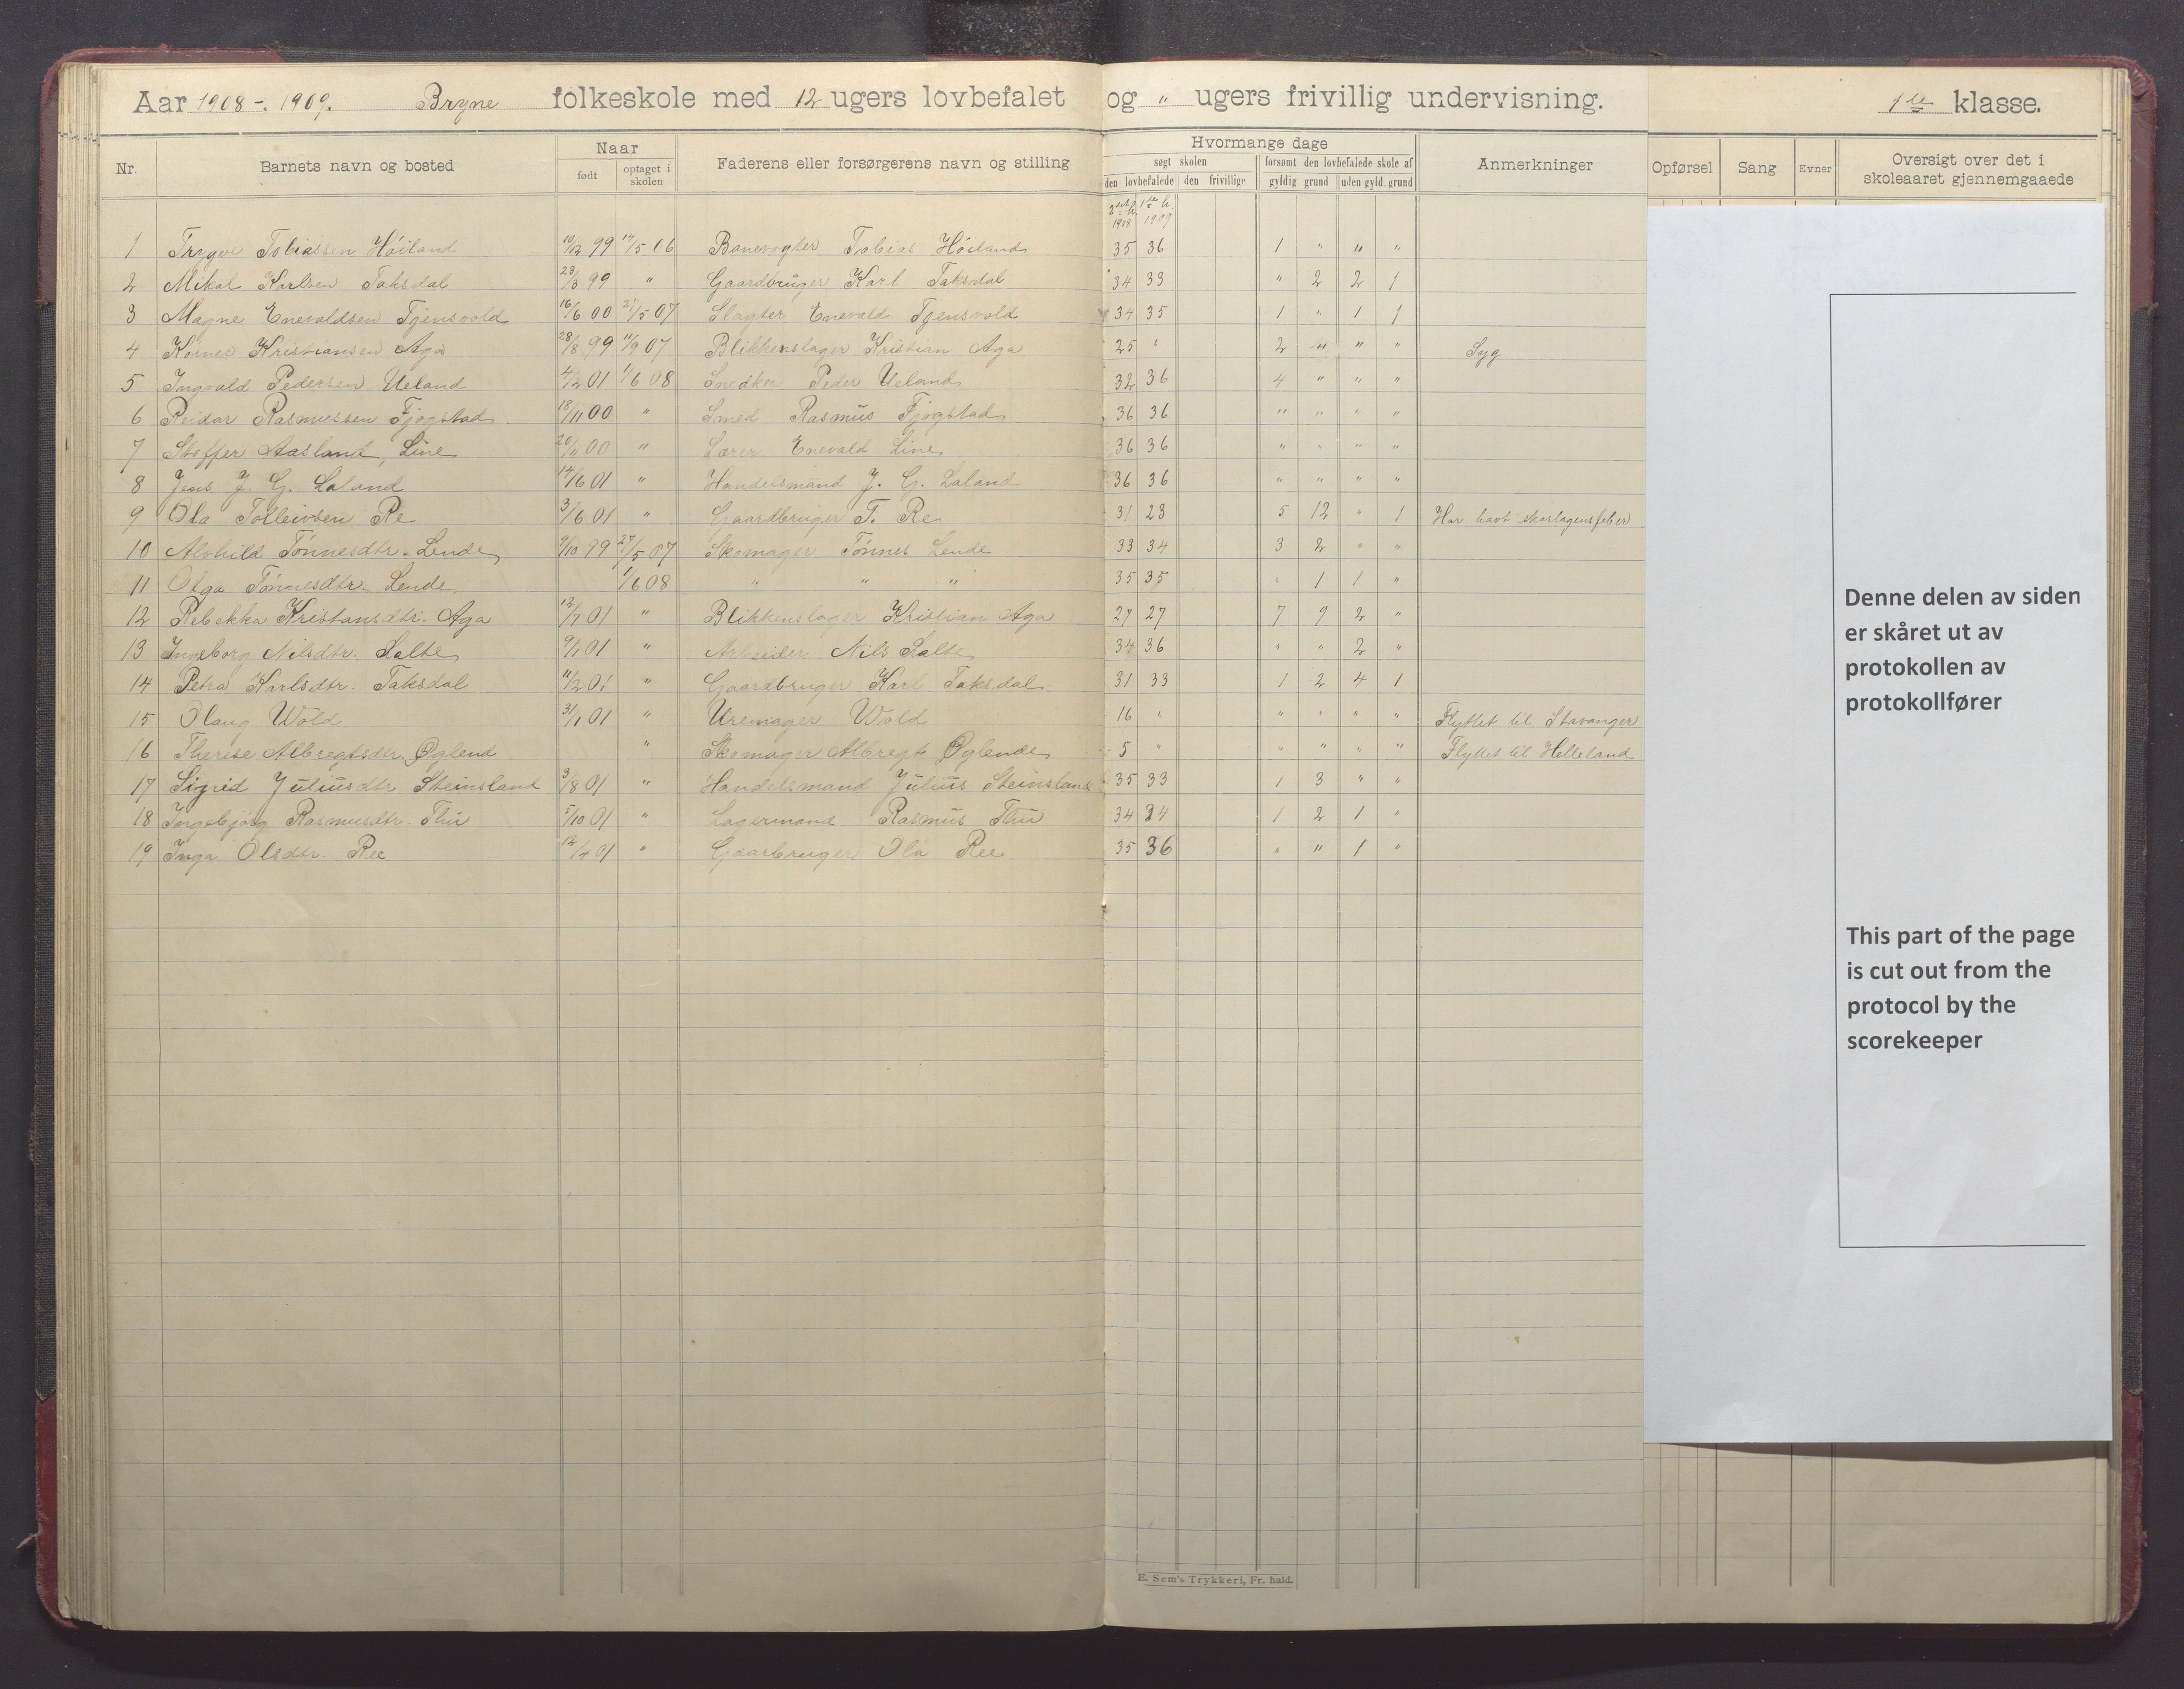 Aar 1908-1909. Bryne folkeskole med 12 ugers lovbefalet og " ugers frivillig undervisning. 1ste klasse.
Nr. Barnets navn og bosted Naar født optaget i skolen Faderens eller forsørgerens navn og stilling Hvormange dage søgt skolen den lovbefalede den frivillige forsømt den lovbefalede skole af gyldig grund uden gyld. grund Anmerkninger Opførsel Sang Evner Oversigt over det i skoleaaret gjennemgaaede
2det h. 1908 1ste h. 1909
1 Trygve Tobiassen Höiland 10/12 99 14/5 06 Banevogter Tobias Höiland 35 36 1 " " "
2 Mikal Karlsen Taksdal 23/8 99 " Gaardbruger Karl Taksdal 34 33 " 2 2 1
3 Magne Enevaldsen Tjensvold 16/6 00 27/5 07 Slagter Enevald Tjensvold 34 35 1 " 1 1
4 Kristiansen Aga 28/8 99 11/9 07 Blikkenslager Kristian Aga 25 " 2 " " " Syg
5 Ingvald Pedersen Ueland 4/2 01 1/6 08 Snedker Peder Ueland 32 36 4 " " "
6 Reidar Rasmussen Fjogstad 18/11 00 " Smed Rasmus Fjogstad 36 36 " " " "
7 Stoffer Aasland, Line 20/11 00 " Lærer Enevald Line 36 36 " " " "
8 Jens J. G. Laland 14/6 01 " Handelsmand J. G. Laland 36 36 " " " "
9 Ola Tolleivsen Re 3/6 01 " Gaardbruger T. Re 31 23 5 12 " 1 Har havt skarlagensfeber
10 Alvhild Tönnesdtr. Lende 9/10 99 27/5 07 Skomager Tönnes Lende 33 34 3 2 " "
11 Olga Tönnesdtr. Lende 1/6 08 " " " 35 35 " 1 1 "
12 Rebekka Kristansdtr. Aga 12/7 01 " Blikkenslager Kristian Aga 27 27 7 9 2 "
13 Ingeborg Nilsdtr. Salte 9/1 01 " Arbeider Nils Salte 34 36 " " 2 "
14 Petra Karlsdtr. Taksdal 11/2 01 " Gaardbruger Karl Taksdal 31 33 1 2 4 1
15 Olaug Wold 31/1 01 " Uremager Wold 16 " " " " " Flyttet til Stavanger
16 Therese Albregtsdtr. Øglend " Skomager Albregt Øglende 5 " " " " " Flyttet til Helleland
17 Sigrid Juliusdtr Steinsland 3/8 01 " Handelsmand Julius Steinsland 35 33 1 3 " "
18 Ingebjörg Rasmusdtr. Thu 5/10 01 " Lagermand Rasmus Thu 34 34 1 2 1 "
19 Inga Olsdtr. Ree 12/4 01 " Gaarbruger Ola Ree 35 36 " " 1 "
Denne delen av siden
er skåret ut av
protokollen av
protokollfører
This part of the page
is cut out from the
protocol by the
scorekeeper
E. Sem's Trykkeri, Fr. hald.